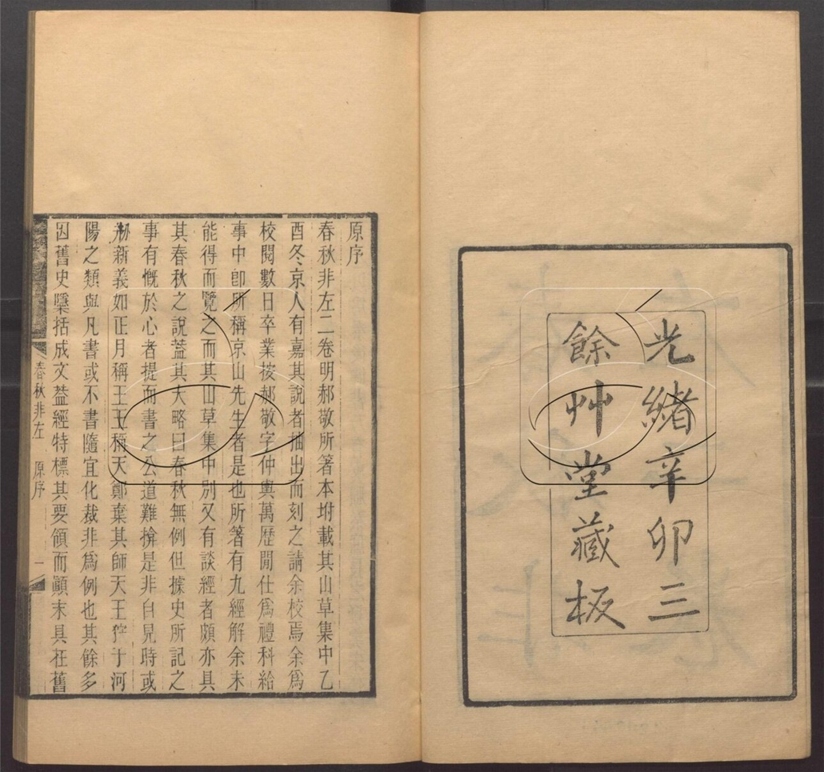 光緒辛卯三
餘艸堂藏板
原序
春秋非左二卷明郝敬所著本坿載其山草集中乙
酉冬京人有嘉其說者抽出而刻之請余校焉余爲
校閱數日卒業按郝敬字仲輿萬歷閒仕爲禮科給
事中卽所稱京山先生者是也所著有九經解余未
能得而覽之而其山草集中別又有談經者頗亦具
其春秋之說葢其大略曰春秋無例但據史所記之
事有慨於心者提而書之公道難揜是非自見時或
剏新義如正月稱王王稱天鄭棄其師天王狩于河
陽之類與凡書或不書隨宜化裁非爲例也其餘多
因舊史檃括成文葢經特標其要領而顚末具在舊
春秋非左 原序 一